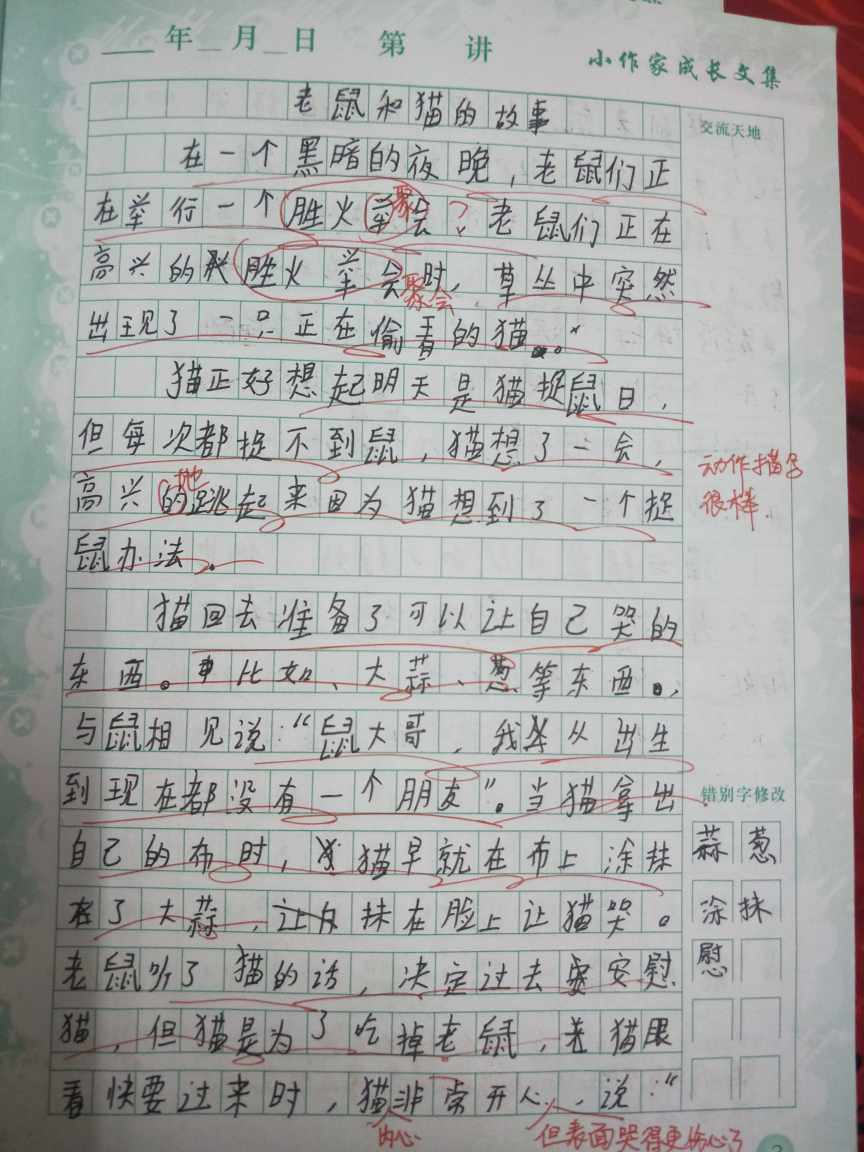 年 月 日 第 讲
小作家成长文集
老鼠和猫的故事
交流天地
在一个黑暗的夜晚，老鼠们正
在举行一个胜火举会？老鼠们正在
聚
高兴的胜火举会时，草丛中突然
聚会
出现了一只正在偷看的猫。
猫正好想起明天是猫捉鼠日，
但每次都捉不到鼠，猫想了一会，
高兴的跳起来因为猫想到了一个捉
地
动作描写
很棒
鼠办法。
猫回去准备了可以让自己哭的
东西。比如、大蒜、葱等东西。，
与鼠相见说：“鼠大哥，我从出生
到现在都没有一个朋友”。当猫拿出
自己的布时，猫早就在布上涂抹
了大蒜，抹在脸上让猫哭。
老鼠听了猫的话，决定过去安慰
猫，但猫是为了吃掉老鼠，猫眼
看快要过来时，猫非常开心，说：“
内心
但表面哭得更伤心了
错别字修改
蒜 葱
涂 抹
慰